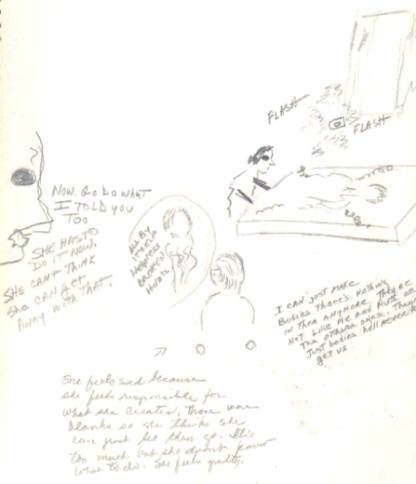 FLASH
FLASH
NOW GO DO WHAT
I TOLD YOU
TOO
SHE HAS TO
DO IT NOW.
SHE CAN'T THINK
SHE CAN GET
AWAY WITH THAT.
ALL BY
ITSELF
HELPLESS
BROKEN
HANDS
I CAN JUST MAKE
BODIES THERE'S NOTHING
IN THEM ANYMORE. THEY'RE
NOT LIKE ME AND
THE OTHER ONES.
JUST BODIES HE'LL NEVER
GET US
She feels sad because
she feels responsible for
what she created, those were
blanks so she thinks she
can just let them go. It's
too much but she doesn't know
what to do. She feels guilty.